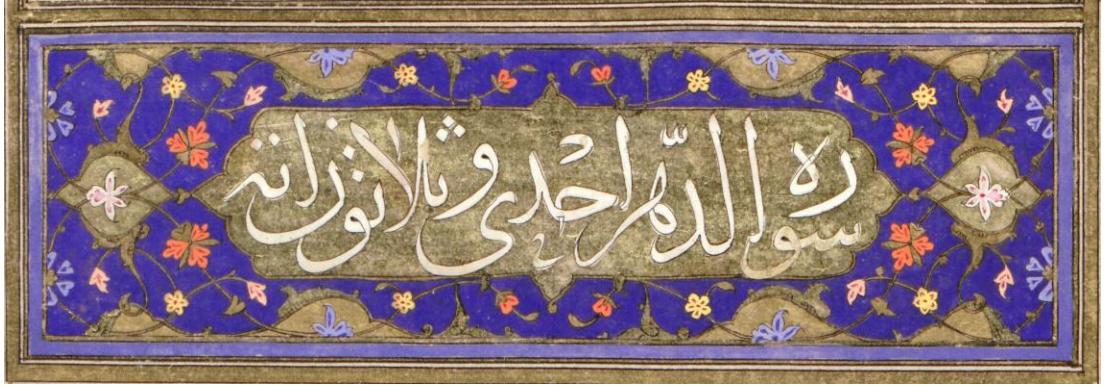 سورة الدهر احدى وثلاثون اية